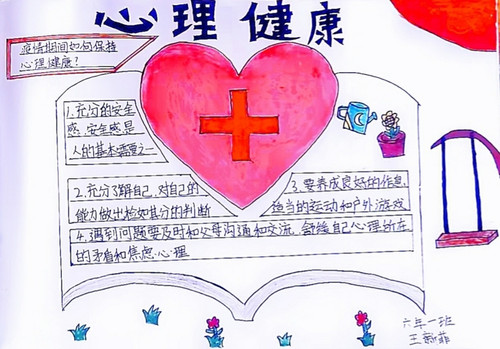 心理健康
疫情期间如何保持
心理健康?
1.充分的安全
感,安全感是
人的基本需要之一
2.充分了解自己,对自己的
能力做出恰如其分的判断
3.要养成良好的作息,
适当的运动和户外游戏
4.遇到问题要及时和父母沟通和交流,舒缓自己心理所在
的矛盾和焦虑心理
六年一班